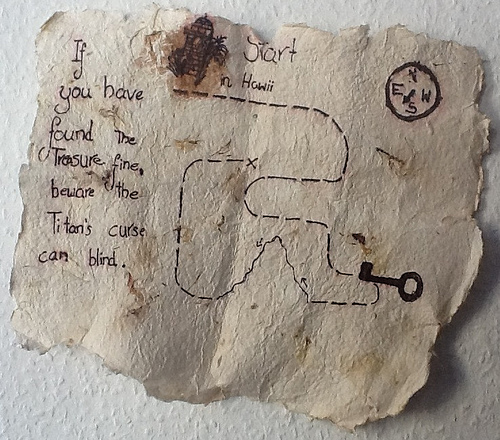 If
you have
found The
Treasure fine,
beware the
Titan's curse
can blind.
Start
in Hawii
N
E W
S
x